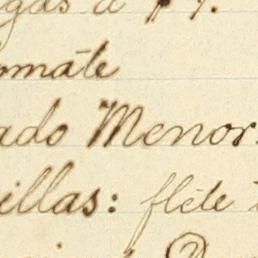 gas á
omáte
ado Menor.
illas: fléte